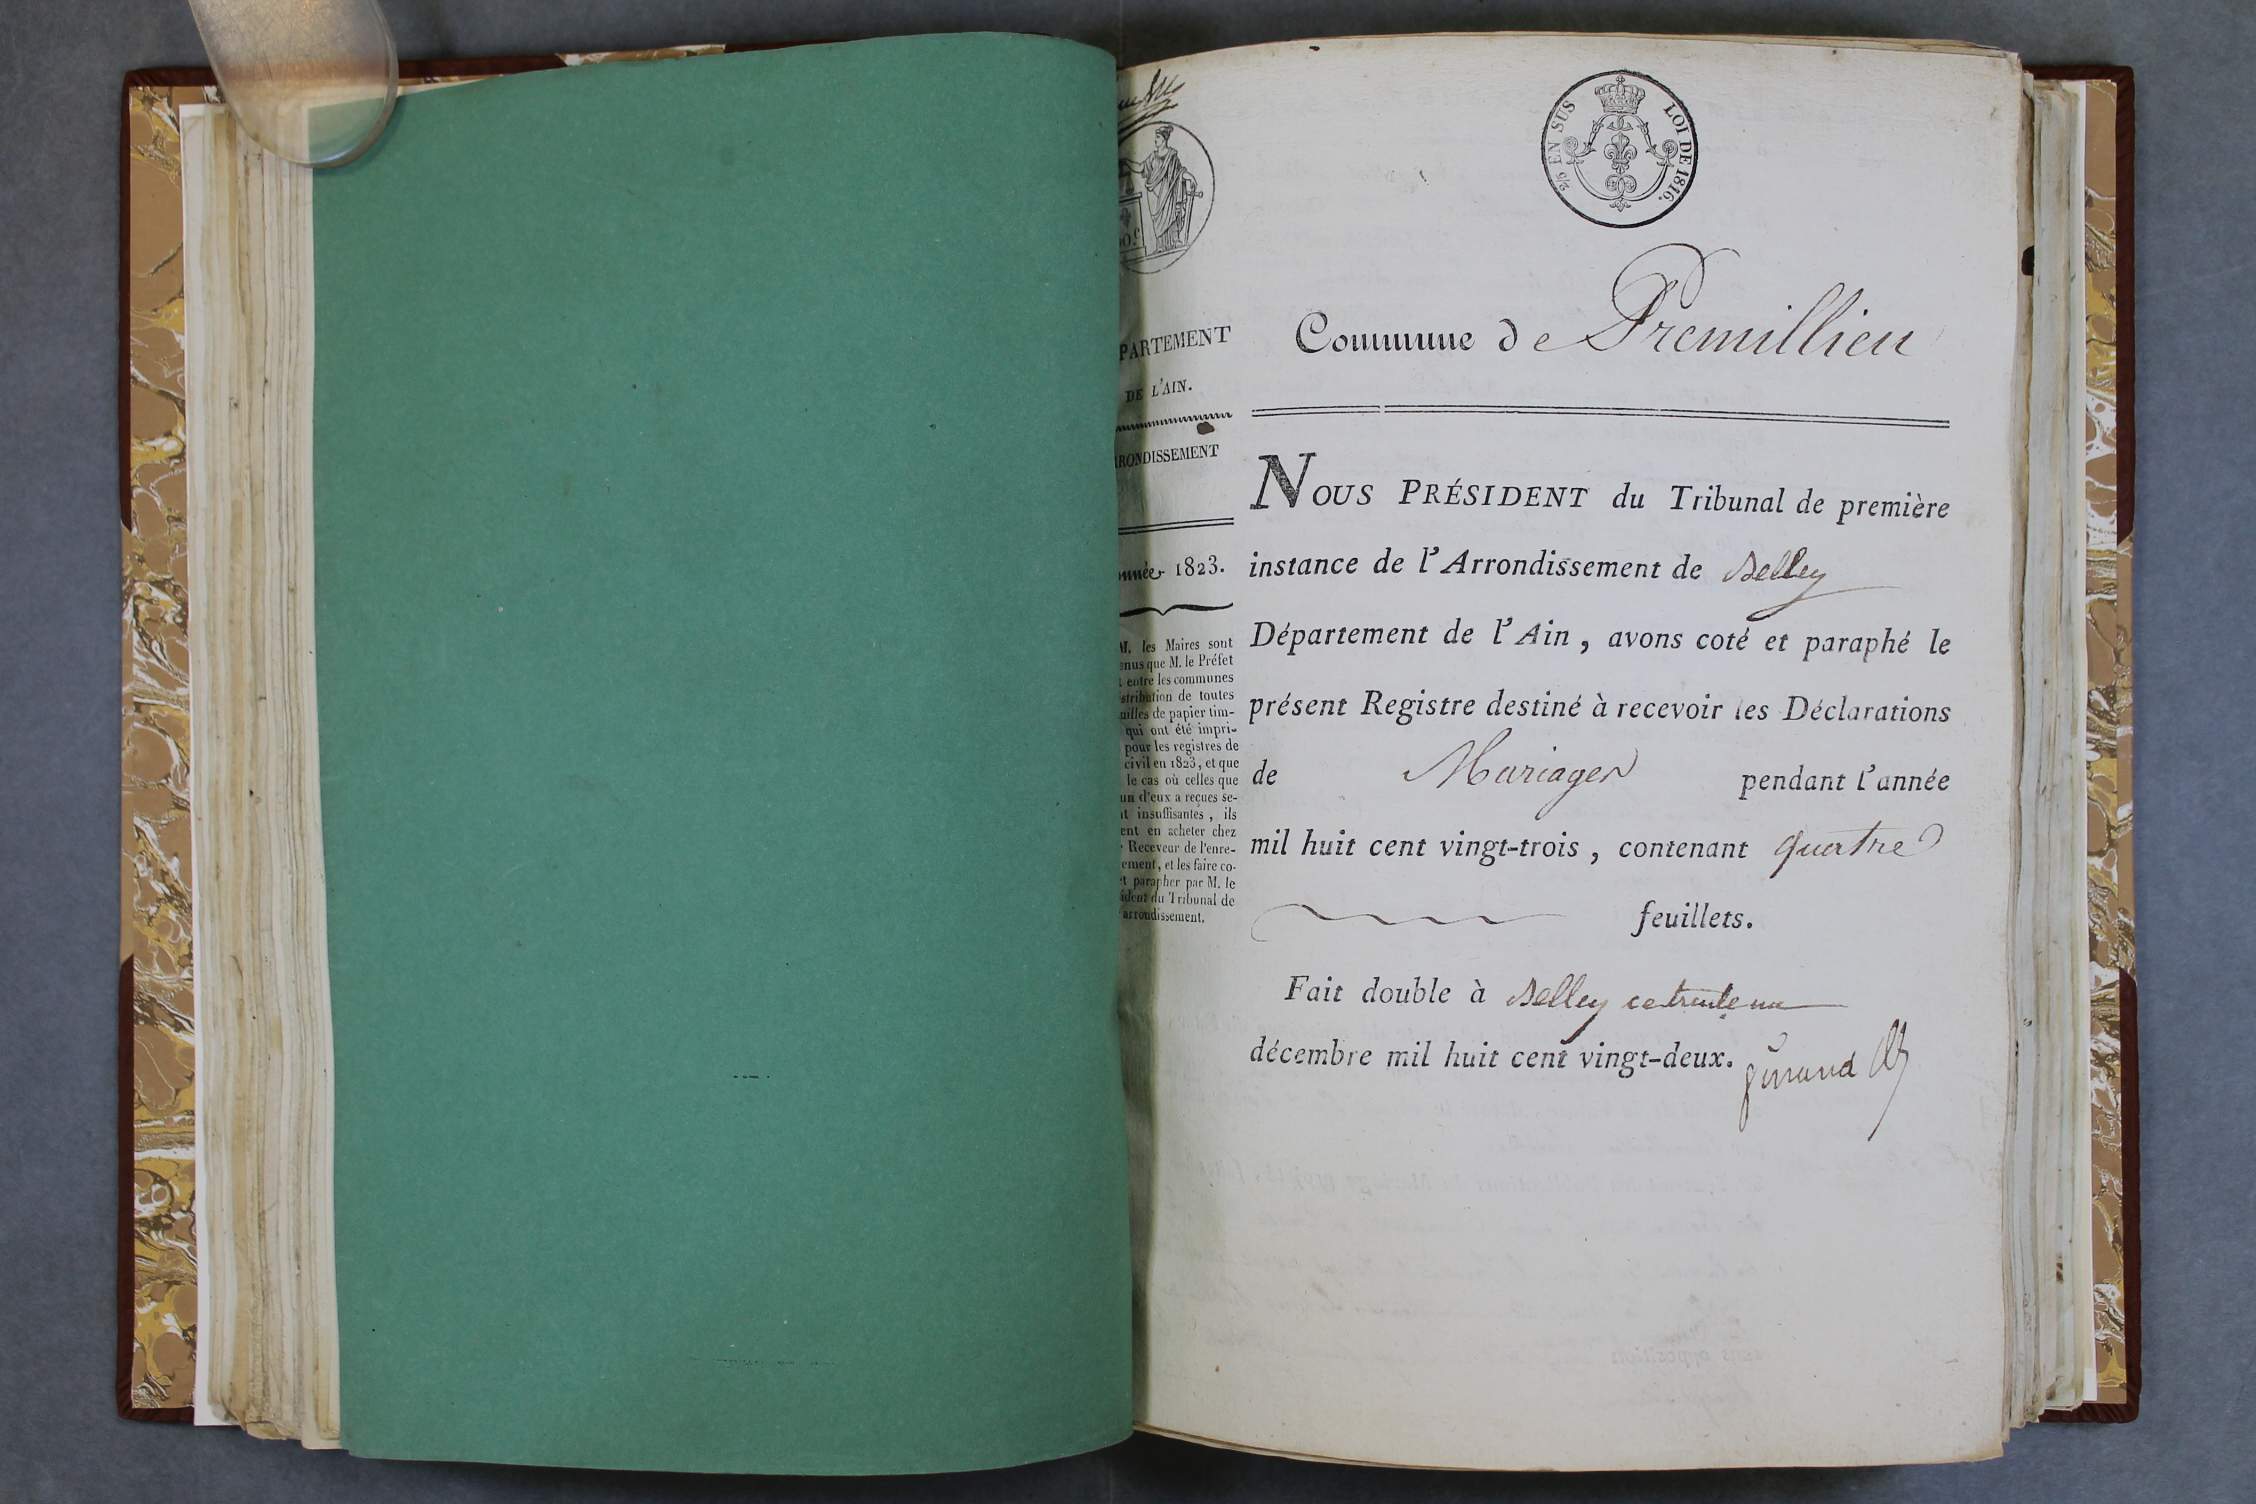 2/5 EN SUS LOI DE 1816.
00.c
PARTEMENT
DE L'AIN.
RRONDISSEMENT
nnée 1823.
M. les Maires sont
enus que M. le Préfet
t entre les communes
stribution de toutes
uilles de papier tim-
qui ont été impri-
pour les registres de
civil en 1823, et que
le cas où celles que
un d'eux a reçues se-
nt insuffisantes, ils
ent en acheter chez
Receveur de l'enre-
ement, et les faire co-
et parapher par M. le
ident du Tribunal de
arrondissement.
Commune de Premillieu
NOUS PRÉSIDENT du Tribunal de première
instance de l'Arrondissement de Belley
Département de l'Ain, avons coté et paraphé le
présent Registre destiné à recevoir les Déclarations
de Mariages pendant l'année
mil huit cent vingt-trois, contenant quatre
feuillets.
Fait double à Belley ce trente un
décembre mil huit cent vingt-deux.